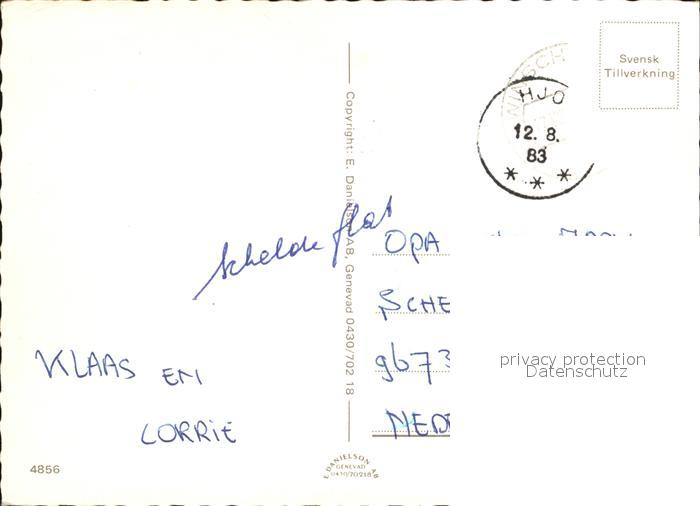 Svensk
Tillverkning
HJO
12. 8.
83
Copyright: E. Danielson AB, Genevad 0430/702 18
Schelde flat
OPA
SCHE
9673
NED
KLAAS EN
LORRIE
privacy protection
Datenschutz
4856
E. DANIELSON AB
GENEVAD
0430/70218